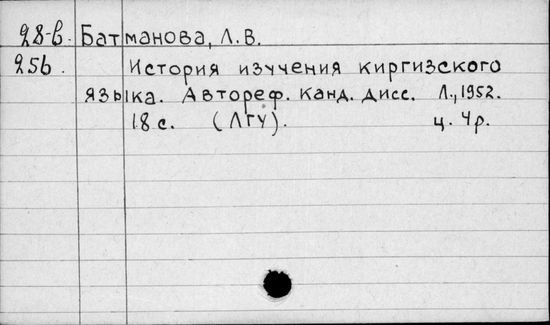 28-в. Батманова, Л.В.
256. История изучения киргизского
языка. Автореф. канд. дисс. Л., 1952.
18 с. (ЛГУ). ц. 4р.